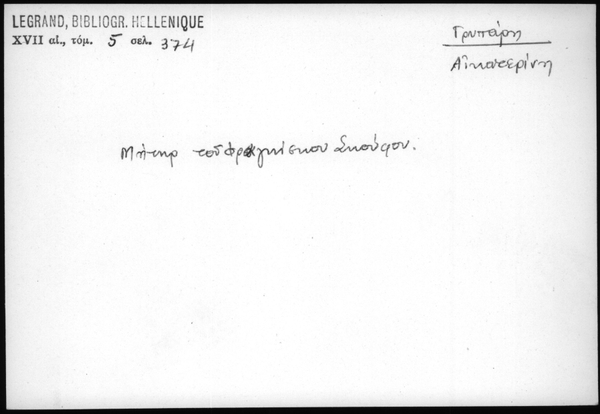 LEGRAND, BIBLIOGR. HELLENIQUE
XVII αἰ., τόμ. 5 σελ. 374
Γρυπάρη
Αἰκατερίνη
Μήτηρ τοῦ Φραγκίσκου Σκούφου.